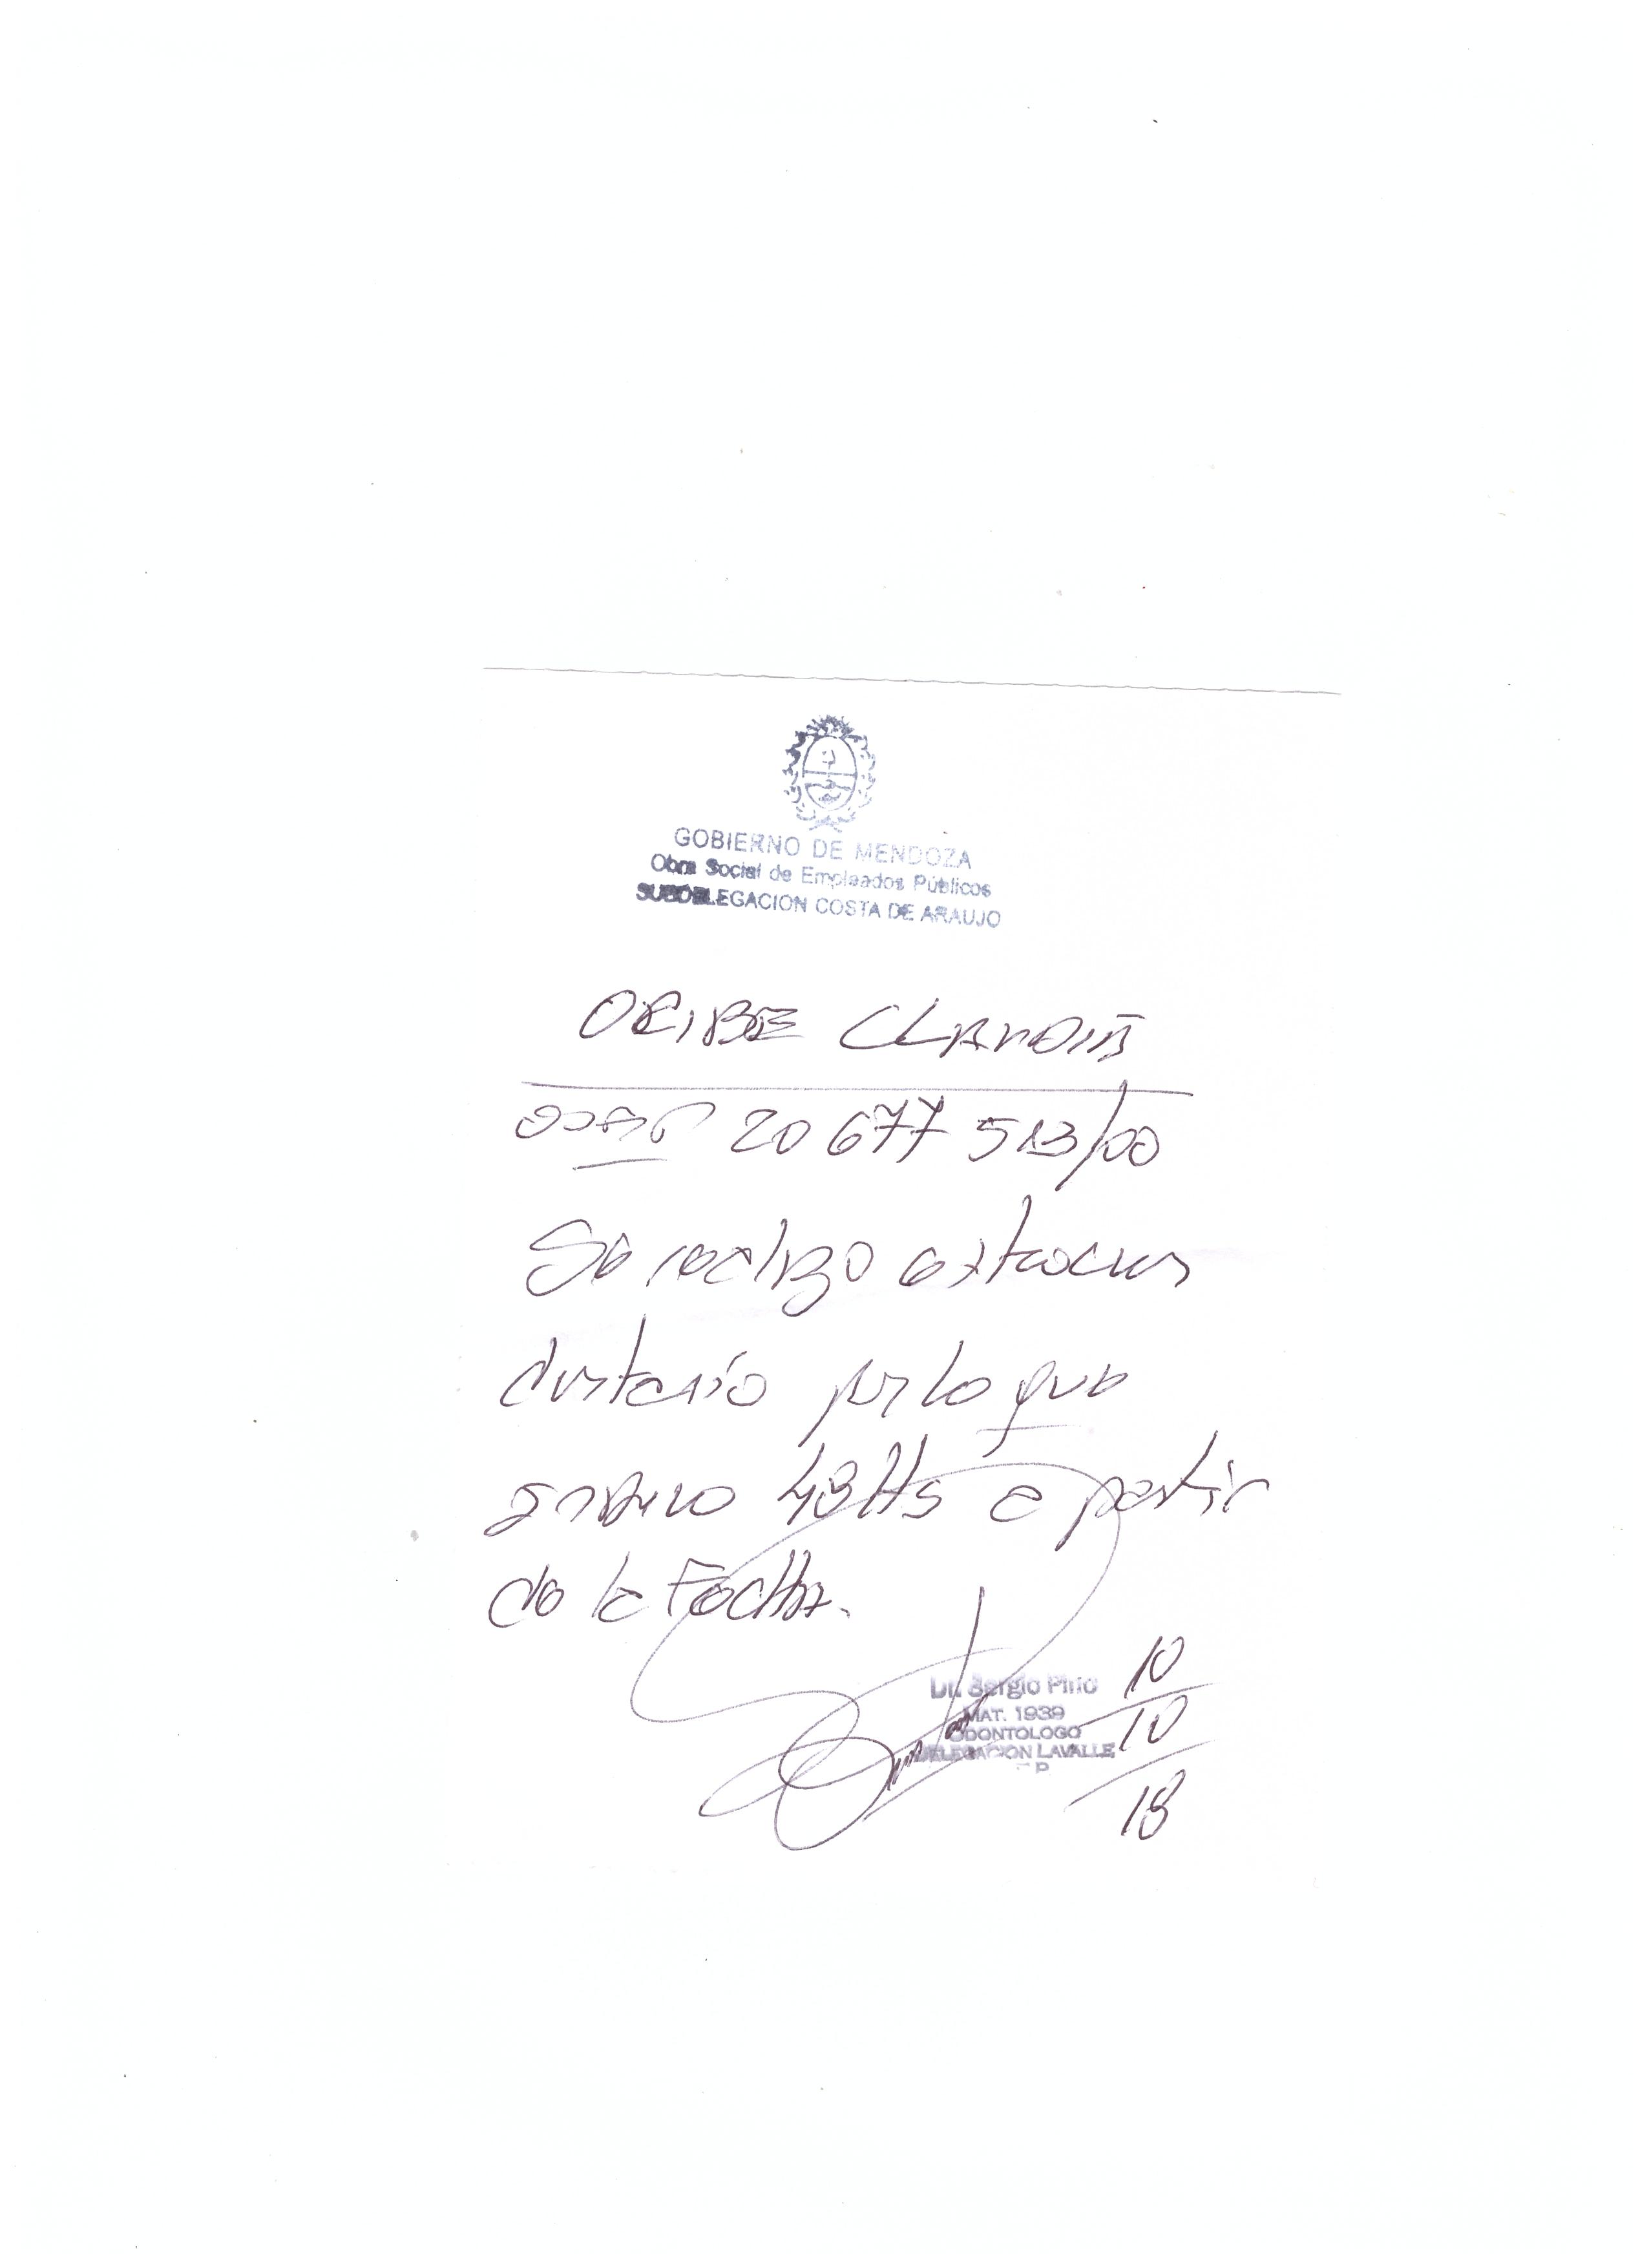 GOBIERNO DE MENDOZA
Obra Social de Empleados Públicos
SUBDELEGACION COSTA DE ARAUJO
ORIBE CLAUDIA
OSEP 20 677 513/00
Se realizo extraccion
dentario por lo que
48 Hs a partir
de la FecHa.
Dr. Sergio Pino
MAT. 1939
ODONTOLOGO
DELEGACION LAVALLE
10
10
18